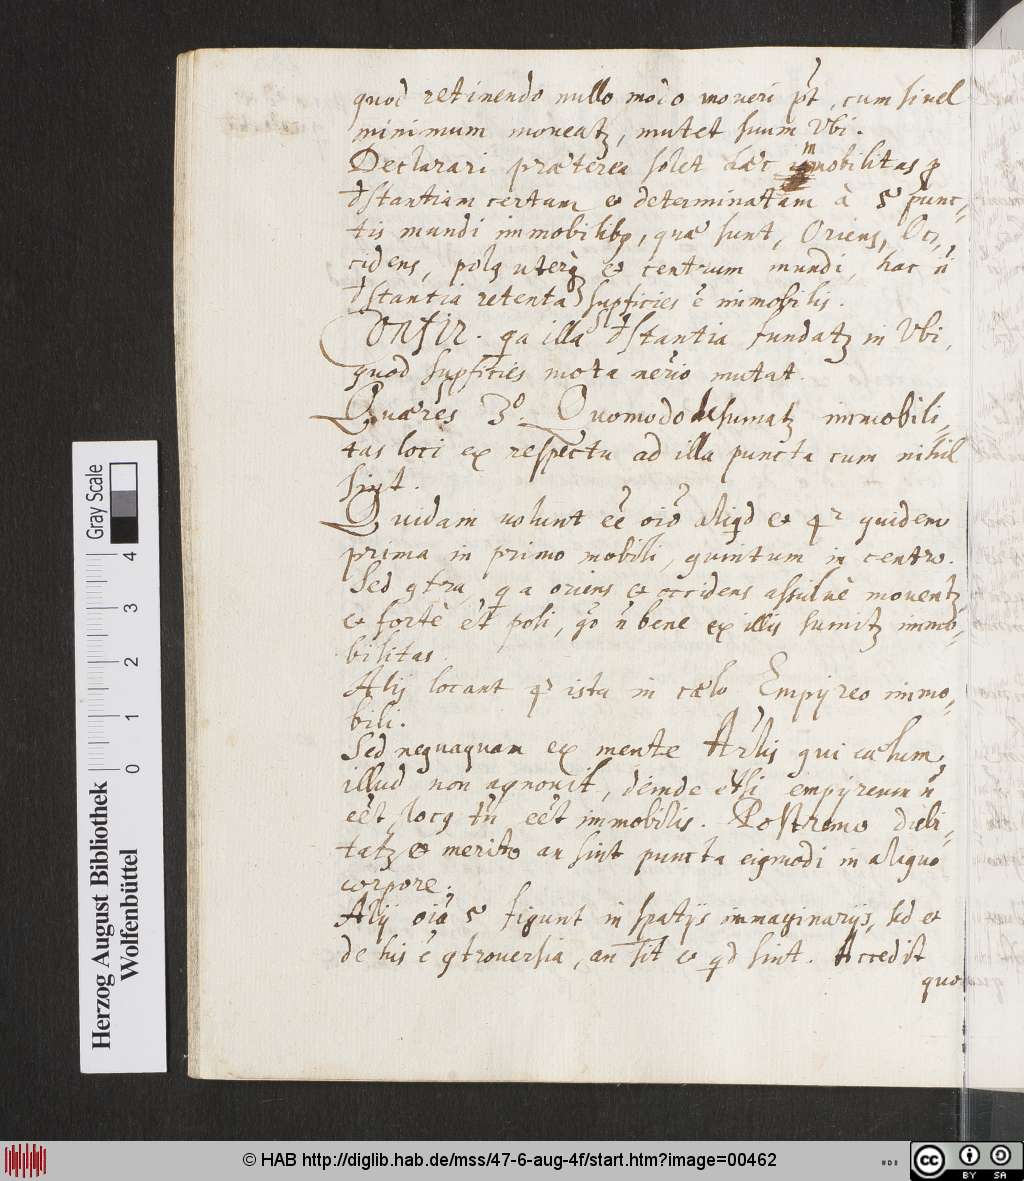 quod retinendo nullo modo moveri pt, cum si vel
minimum moveatz, mutet suum Ubi.
Declarari præterea solet hæc immobilitas p
distantiam certam et determinatam à 5 punc-
tis mundi immobilibq, quæ sunt, Oriens, Oc-
cidens, polq uterq et centrum mundi, hac n
distantia retenta supficies ẽ immobilis.
Confir. qa illa distantia fundatz in Ubi,
quod supficies mota neriò mutat.
Quæres 3º. Quomodo desumatz immobili-
tas loci ex respectu ad illa puncta cum nihil
sint.
Quidam volunt eẽ oiõ aliqd et 4r quidem
prima in primo mobili, quintum in centro.
Sed 9tra, qa oriens et occidens assiduè moventz
et fortè et poli, qõ ñ bene ex illis sumitz immo-
bilitas.
Alij locant 4r ista in cælo Empyreo immo-
bili.
Sed nequaquam ex mente Arlis qui cælum
illud non agnovit, deinde etsi empyreum ñ
eẽt, locq tñ eẽt immobilis. Postremo dubi-
tatz et merito an sint puncta eiqmodi in aliquo
corpore.
Alij oiã 5 figunt in spatijs immaginarijs, sed et
de his ẽ 9troversia, an sit et qd sint. Accedit
quo
Herzog August Bibliothek
Wolfenbüttel
0 1 2 3 4
Gray Scale
© HAB http://diglib.hab.de/mss/47-6-aug-4f/start.htm?image=00462
cc BY SA